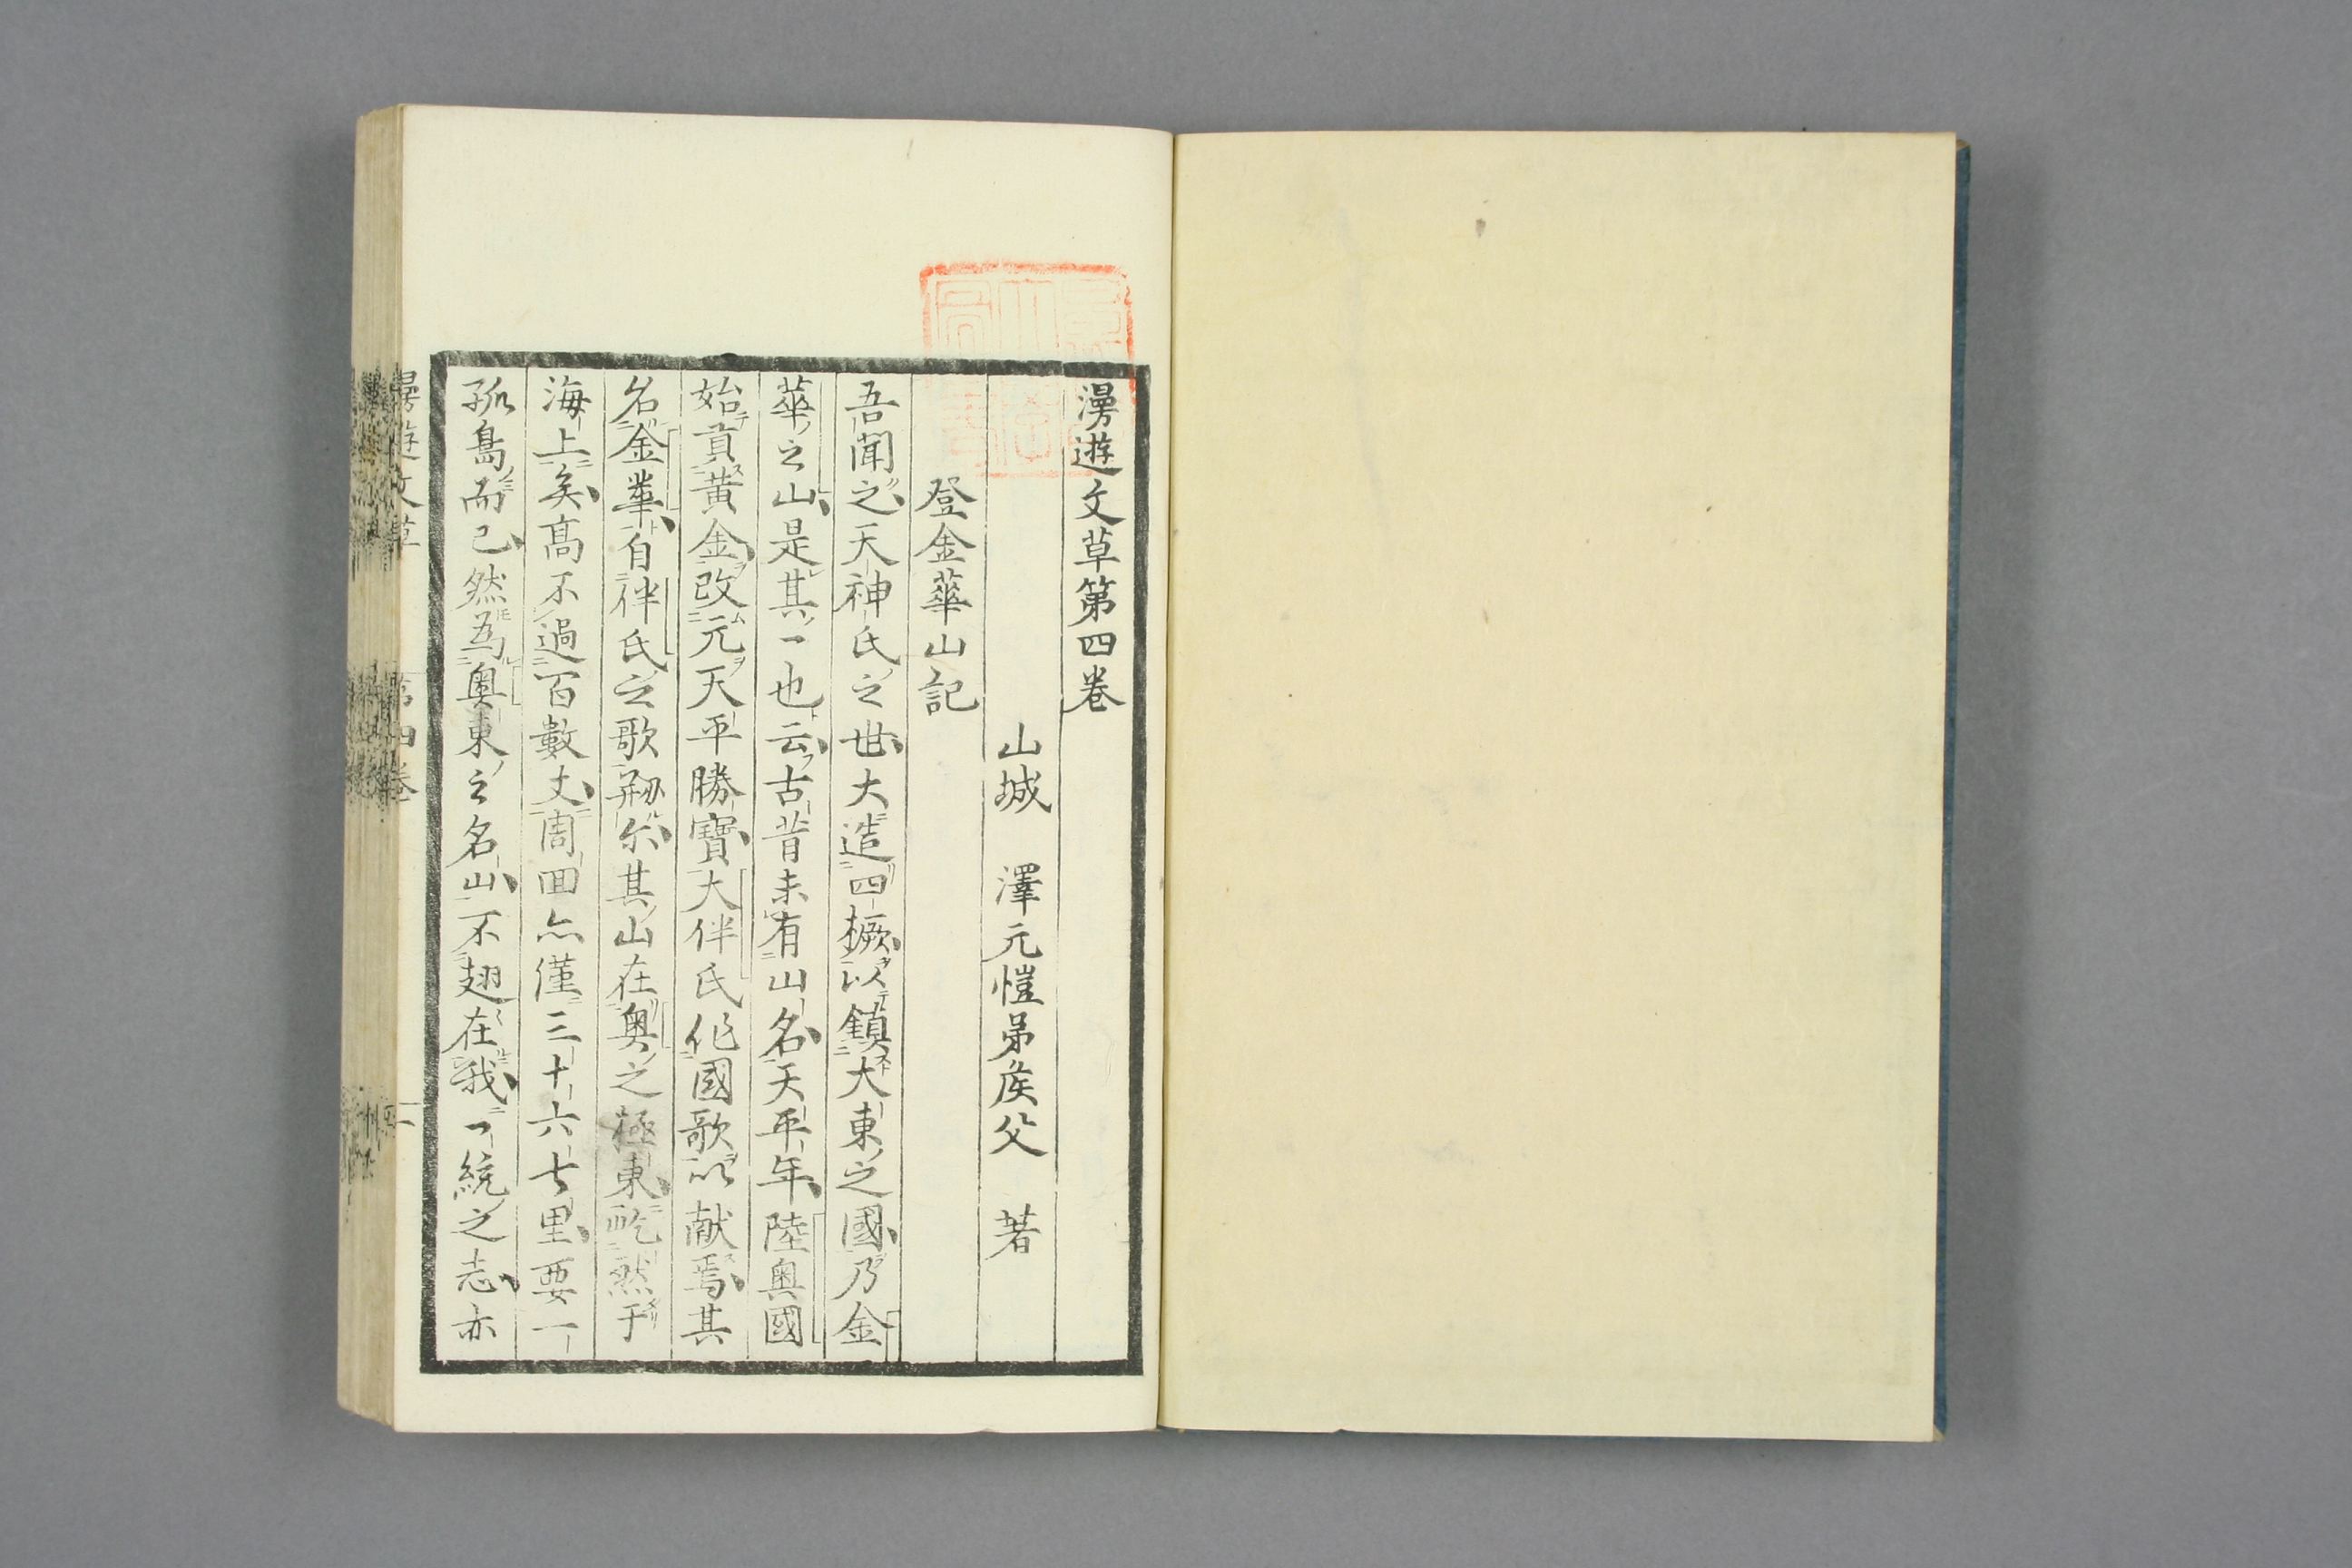 漫遊文草第四卷
山城 澤元愷弟侯父 著
登金華山記
吾聞之天神氏之世大造四橛以鎮大東之國乃金
華之山是其一也云古昔未有山名天平年陸奥國
始貢黄金改元天平勝寶大伴氏作國歌以献焉其
名金華自伴氏之歌刱尓其山在奥之極東屹然于
海上矣髙不過百數丈周囬亦僅三十六七里要一
孤島而已然爲奥東之名山不翅在我一統之志亦
漫遊文草 第四卷 一